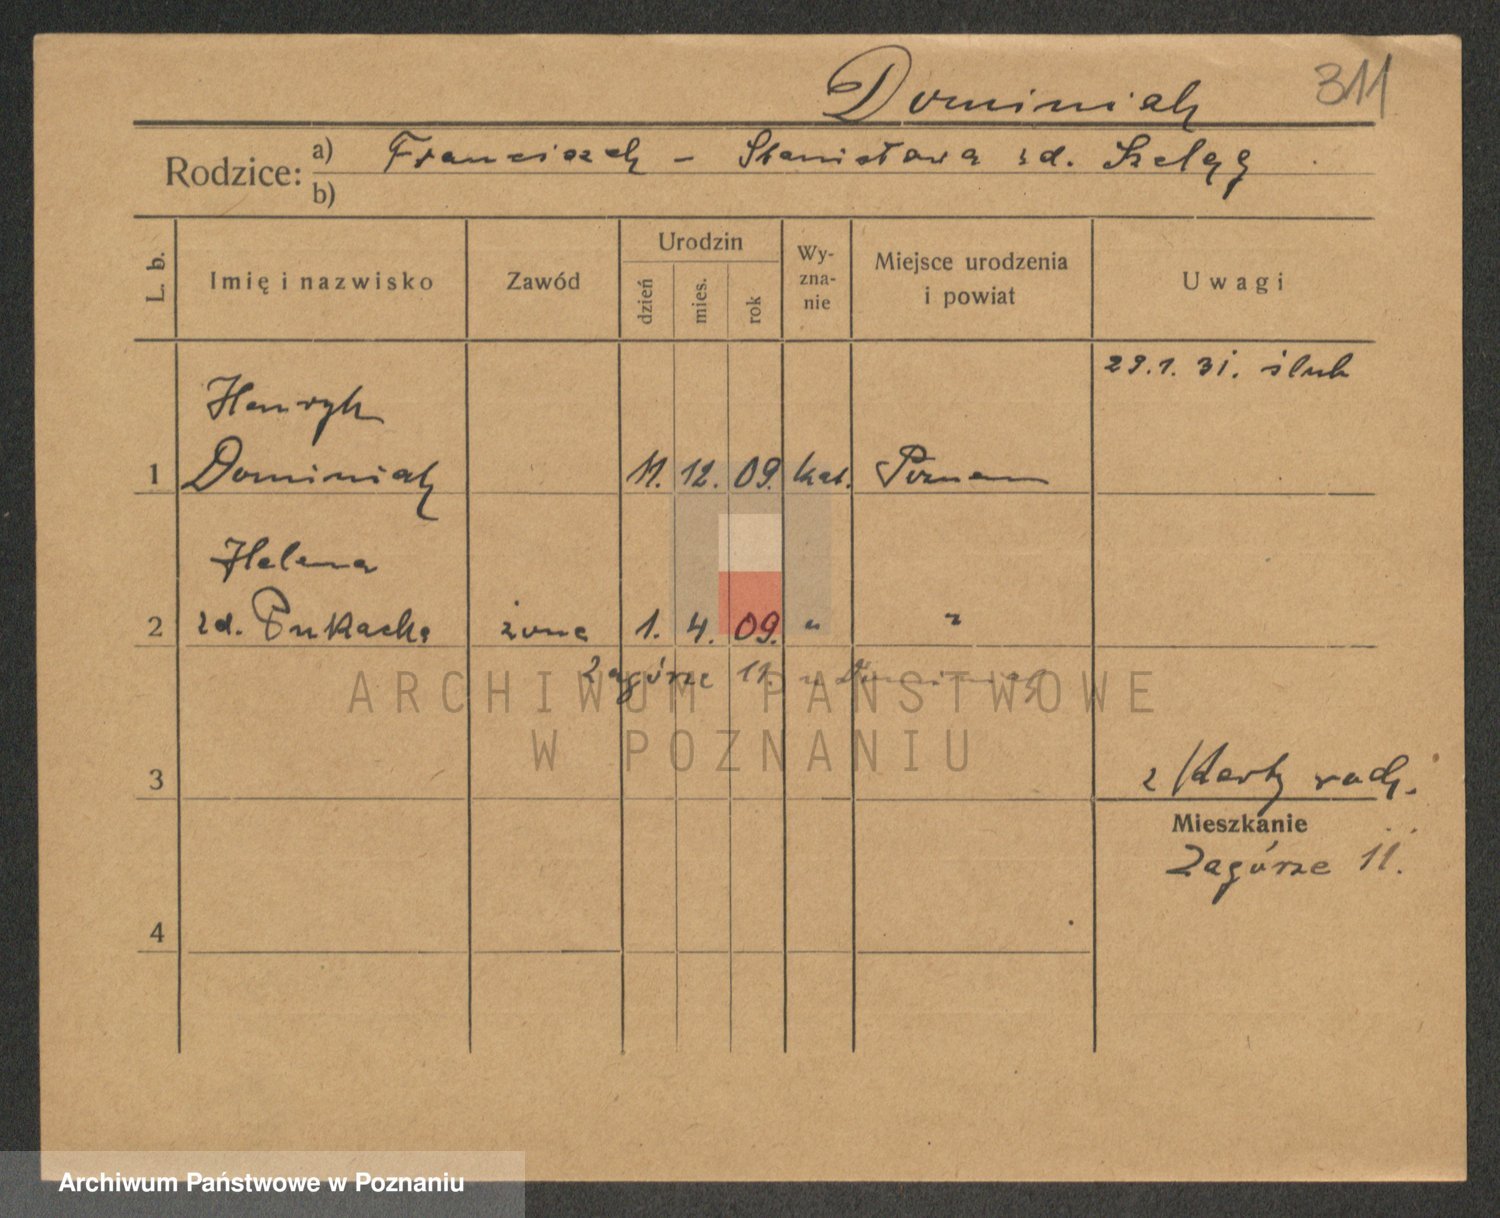 Dominiak
311
Rodzice: a) Franciszek - Stanisława zd. Szeląg
b)
L. b.
Imię i nazwisko
Zawód
Urodzin
dzień
mies.
rok
Wy-
zna-
nie
Miejsce urodzenia
i powiat
Uwagi
29.1.31. ślub
Henryk
1 Dominiak 11. 12. 09. kat. Poznań
Helena
2 zd. żona 1. 4. 09. " "
Zagórze 11. u Dominiak
3
z Karty rodz.
Mieszkanie
Zagórze 11.
4
ARCHIWUM PAŃSTWOWE
W POZNANIU
Archiwum Państwowe w Poznaniu